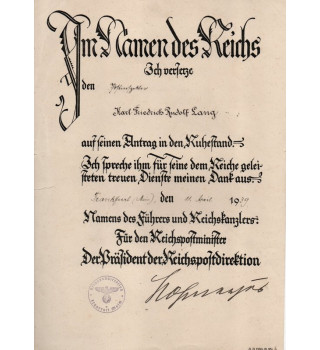 Im Namen des Reichs
Ich versetze
den
Karl Friedrich Rudolf Lang
auf seinen Antrag in den Ruhestand.
Ich spreche ihm für seine dem Reiche gelei-
steten treuen Dienste meinen Dank aus.
Frankfurt (Main), den 19
Namens des Führers und Reichskanzlers:
Für den Reichspostminister
Der Präsident der Reichspostdirektion